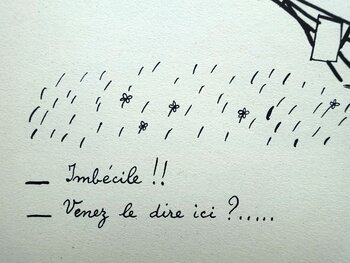 — Imbécile !!
— Venez le dire ici ?.....